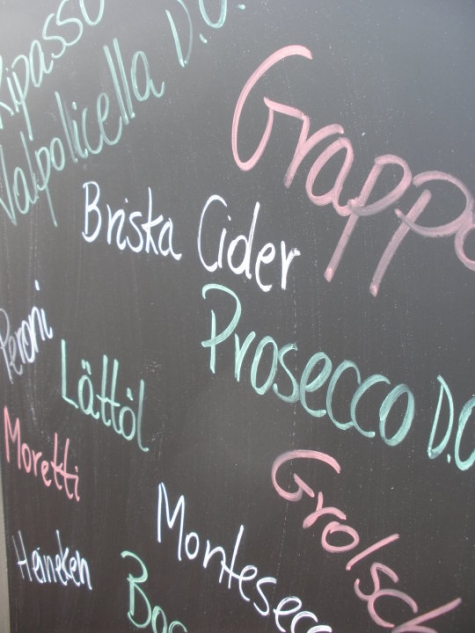 Ripasso
Valpolicella D.O.
Grappa
Briska Cider
Prosecco D.O
Peroni
Lättöl
Moretti
Grolsch
Montesecc
Heineken